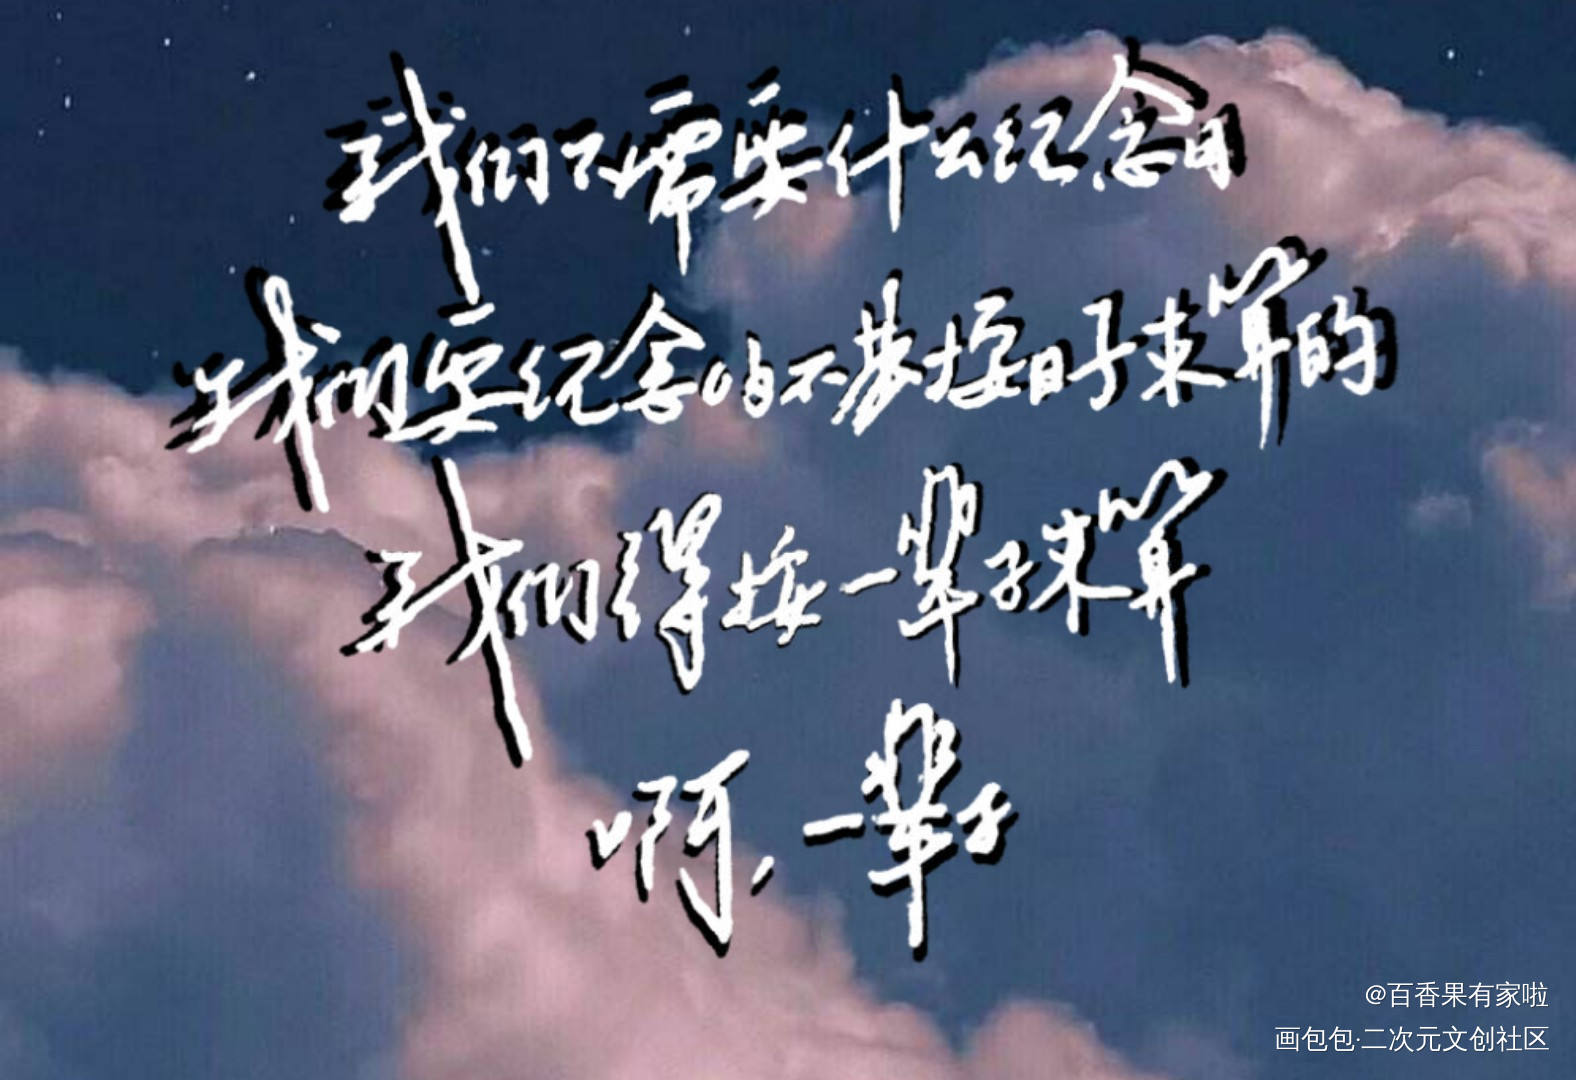 我们不需要什么纪念日
我们要纪念的不是按日子来算的
我们得按一辈子来算
啊，一辈子
@百香果有家啦
画包包·二次元文创社区